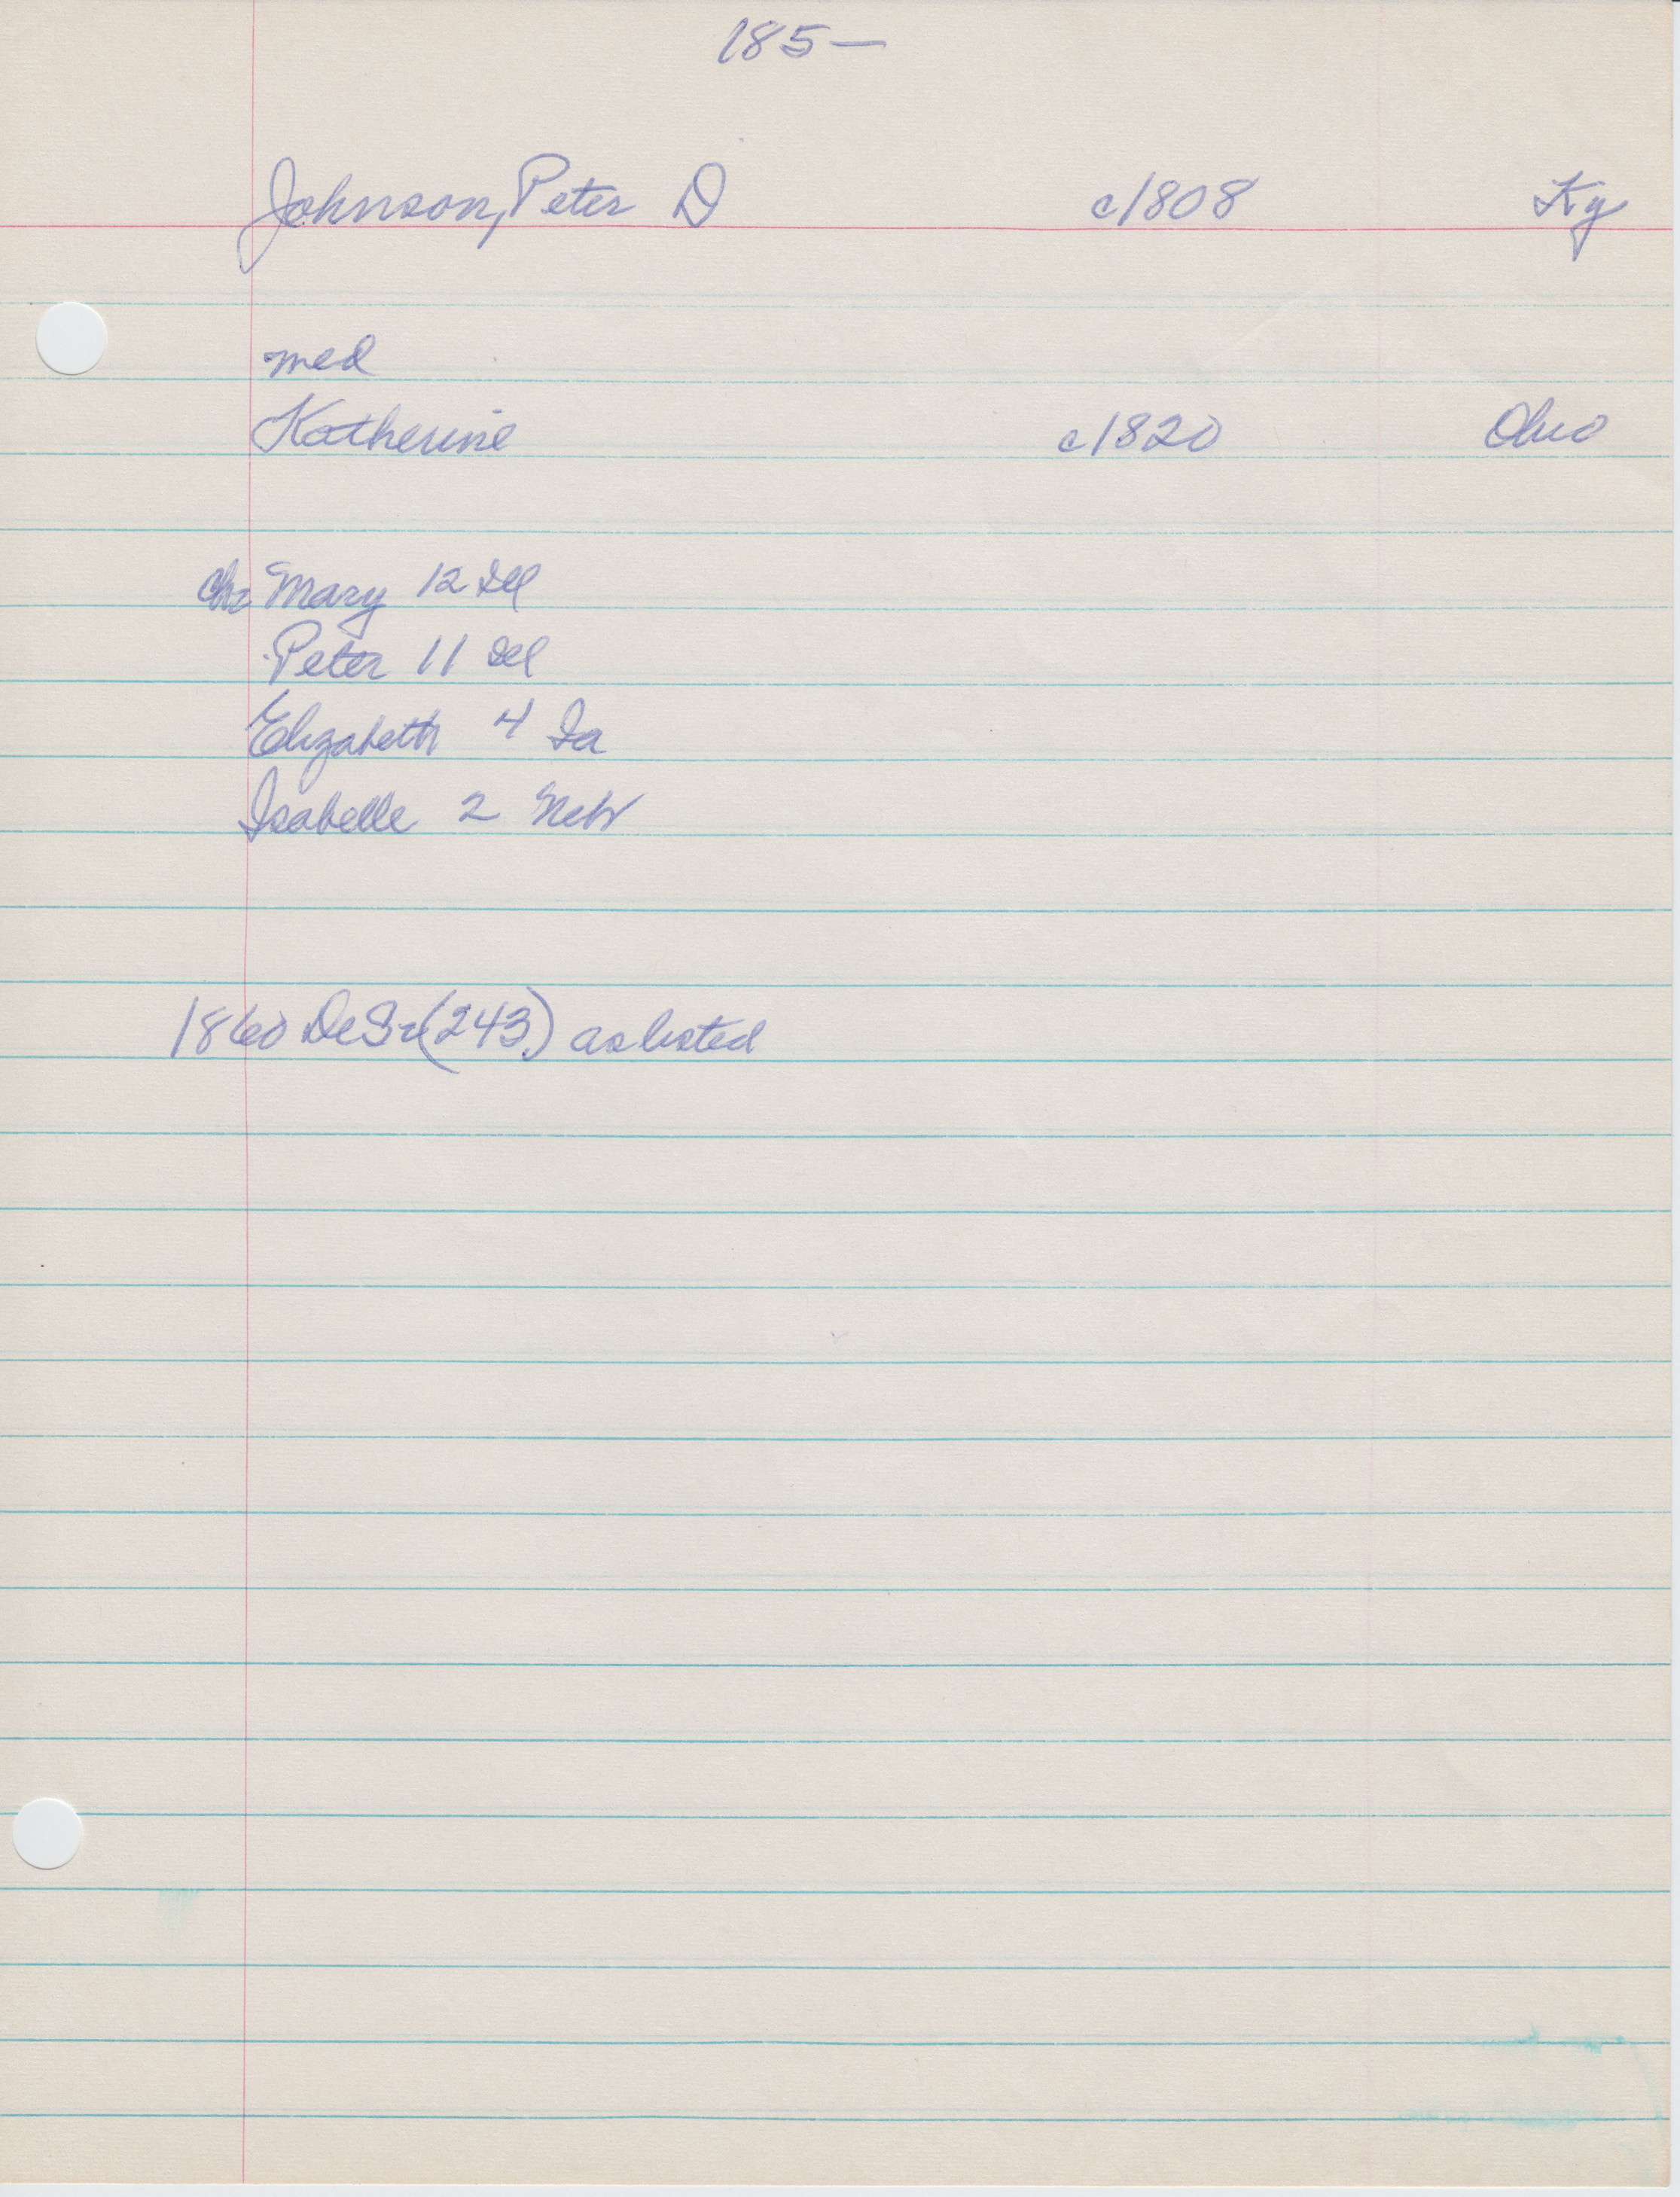 185—
Johnson, Peter D c1808 Ky
med
Katherine c1820 Ohio
chr Mary 12 Ill
Peter 11 Ill
Elizabeth 4 Ia
Isabelle 2 Neb
1860 DeSo (243) as listed